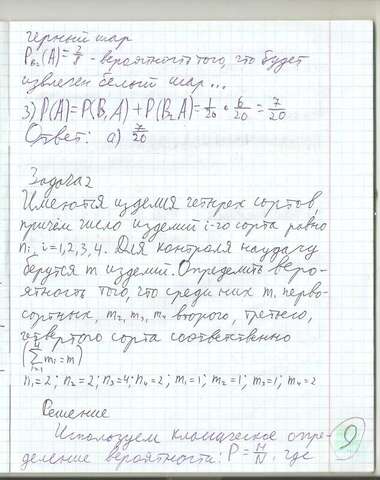 черный шар
P_{B₂}(A)=2/8 - вероятность того, что будет
извлечен белый шар...
3) P(A)=P(B₁A)+P(B₂A)=1/20+6/20=7/20
Ответ: а) 7/20
Задача 2
Имеются изделия четырех сортов,
причём число изделий i-го сорта равно
nᵢ, i=1,2,3,4. Для контроля наудачу
берутся m изделий. Определить веро-
ятность того, что среди них m₁ перво-
сортных, m₂, m₃, m₄ второго, третьего,
четвертого сорта соответственно
(∑_{i=1}^{4} mᵢ=m)
n₁=2; n₂=2; n₃=4; n₄=2; m₁=1; m₂=1; m₃=1; m₄=2
Решение
Используем классическое опре-
деление вероятности: P=M/N, где
9